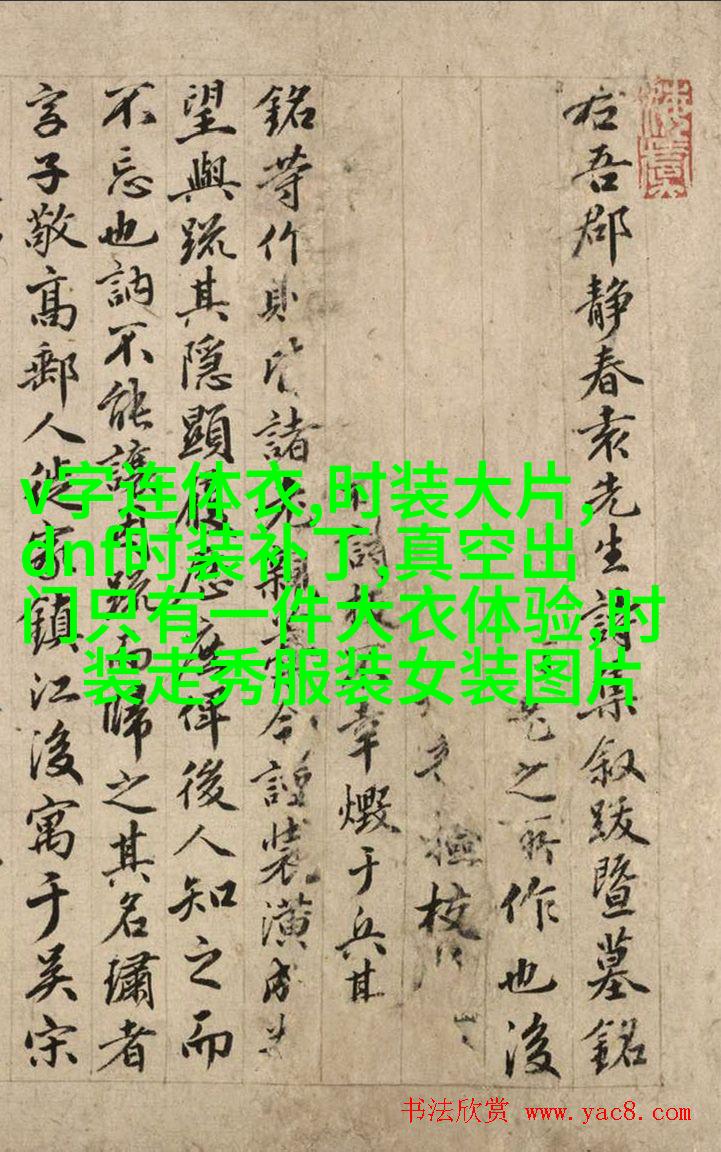 右吾郡静春袁先生詩集叙跋暨墓銘
之所作也後
檢校
幸燬于兵其
銘等作則皆諸先 謹裝潢成
望與疏其隱顯履歷庶俾後人知之而
不忘也訥不能讓 疏而歸之其名璛者
字子敬高郵人徙家鎮江後寓于吴宋
v字连体衣,时装大片,
dnf时装补丁,真空出
门只有一件大衣体验,时
装走秀服装女装图片
书法欣赏 www.yac8.com